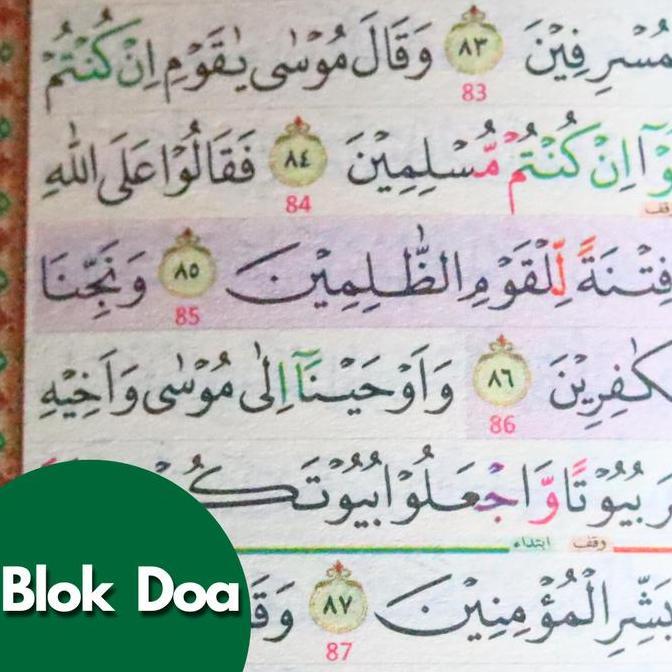 مُسْرِفِيْنَ ٨٣ وَقَالَ مُوْسٰى يٰقَوْمِ اِنْ كُنْتُمْ
83
اِنْ كُنْتُمْ مُّسْلِمِيْنَ ٨٤ فَقَالُوْا عَلَى اللّٰهِ
84
فِتْنَةً لِّلْقَوْمِ الظّٰلِمِيْنَ ٨٥ وَنَجِّنَا
85
كٰفِرِيْنَ ٨٦ وَاَوْحَيْنَآ اِلٰى مُوْسٰى وَاَخِيْهِ
86
بُيُوْتًا وَّاجْعَلُوْا بُيُوْتَك
وقف ابتداء
بَشِّرِ الْمُؤْمِنِيْنَ ٨٧ وَقَ
87
Blok Doa